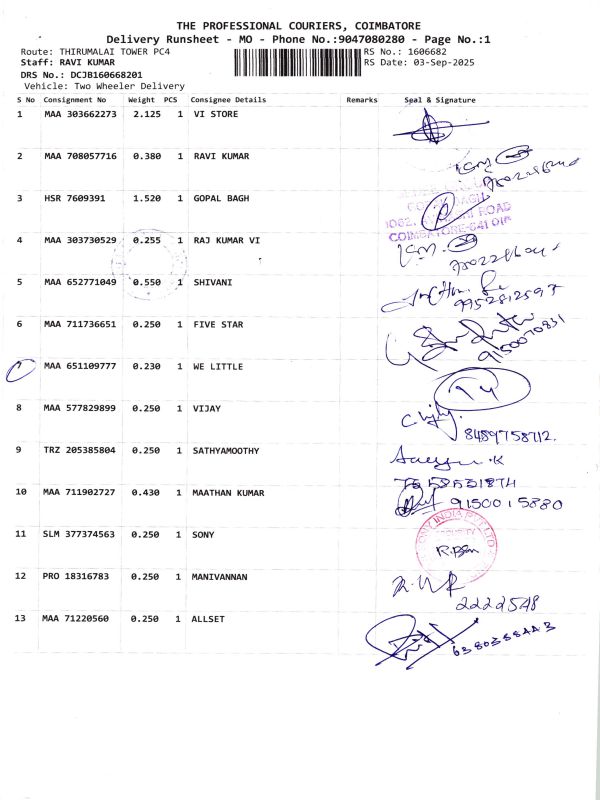 THE PROFESSIONAL COURIERS, COIMBATORE
Delivery Runsheet - MO - Phone No.:9047080280 - Page No.:1
Route: THIRUMALAI TOWER PC4 RS No.: 1606682
Staff: RAVI KUMAR RS Date: 03-Sep-2025
DRS No.: DCJB160668201
Vehicle: Two Wheeler Delivery
S No Consignment No Weight PCS Consignee Details Remarks Seal & Signature
1 MAA 303662273 2.125 1 VI STORE
2 MAA 708057716 0.380 1 RAVI KUMAR
3 HSR 7609391 1.520 1 GOPAL BAGH
ROAD
COIMBATORE-641 01
4 MAA 303730529 0.255 1 RAJ KUMAR VI
5 MAA 652771049 0.550 1 SHIVANI
9952812597
6 MAA 711736651 0.250 1 FIVE STAR
9150070831
7 MAA 651109777 0.230 1 WE LITTLE
8 MAA 577829899 0.250 1 VIJAY
8489758712.
9 TRZ 205385804 0.250 1 SATHYAMOOTHY
10 MAA 711902727 0.430 1 MAATHAN KUMAR
9150015880
11 SLM 377374563 0.250 1 SONY
INDIA PVT LTD
12 PRO 18316783 0.250 1 MANIVANNAN
2222548
13 MAA 71220560 0.250 1 ALLSET
6380358443